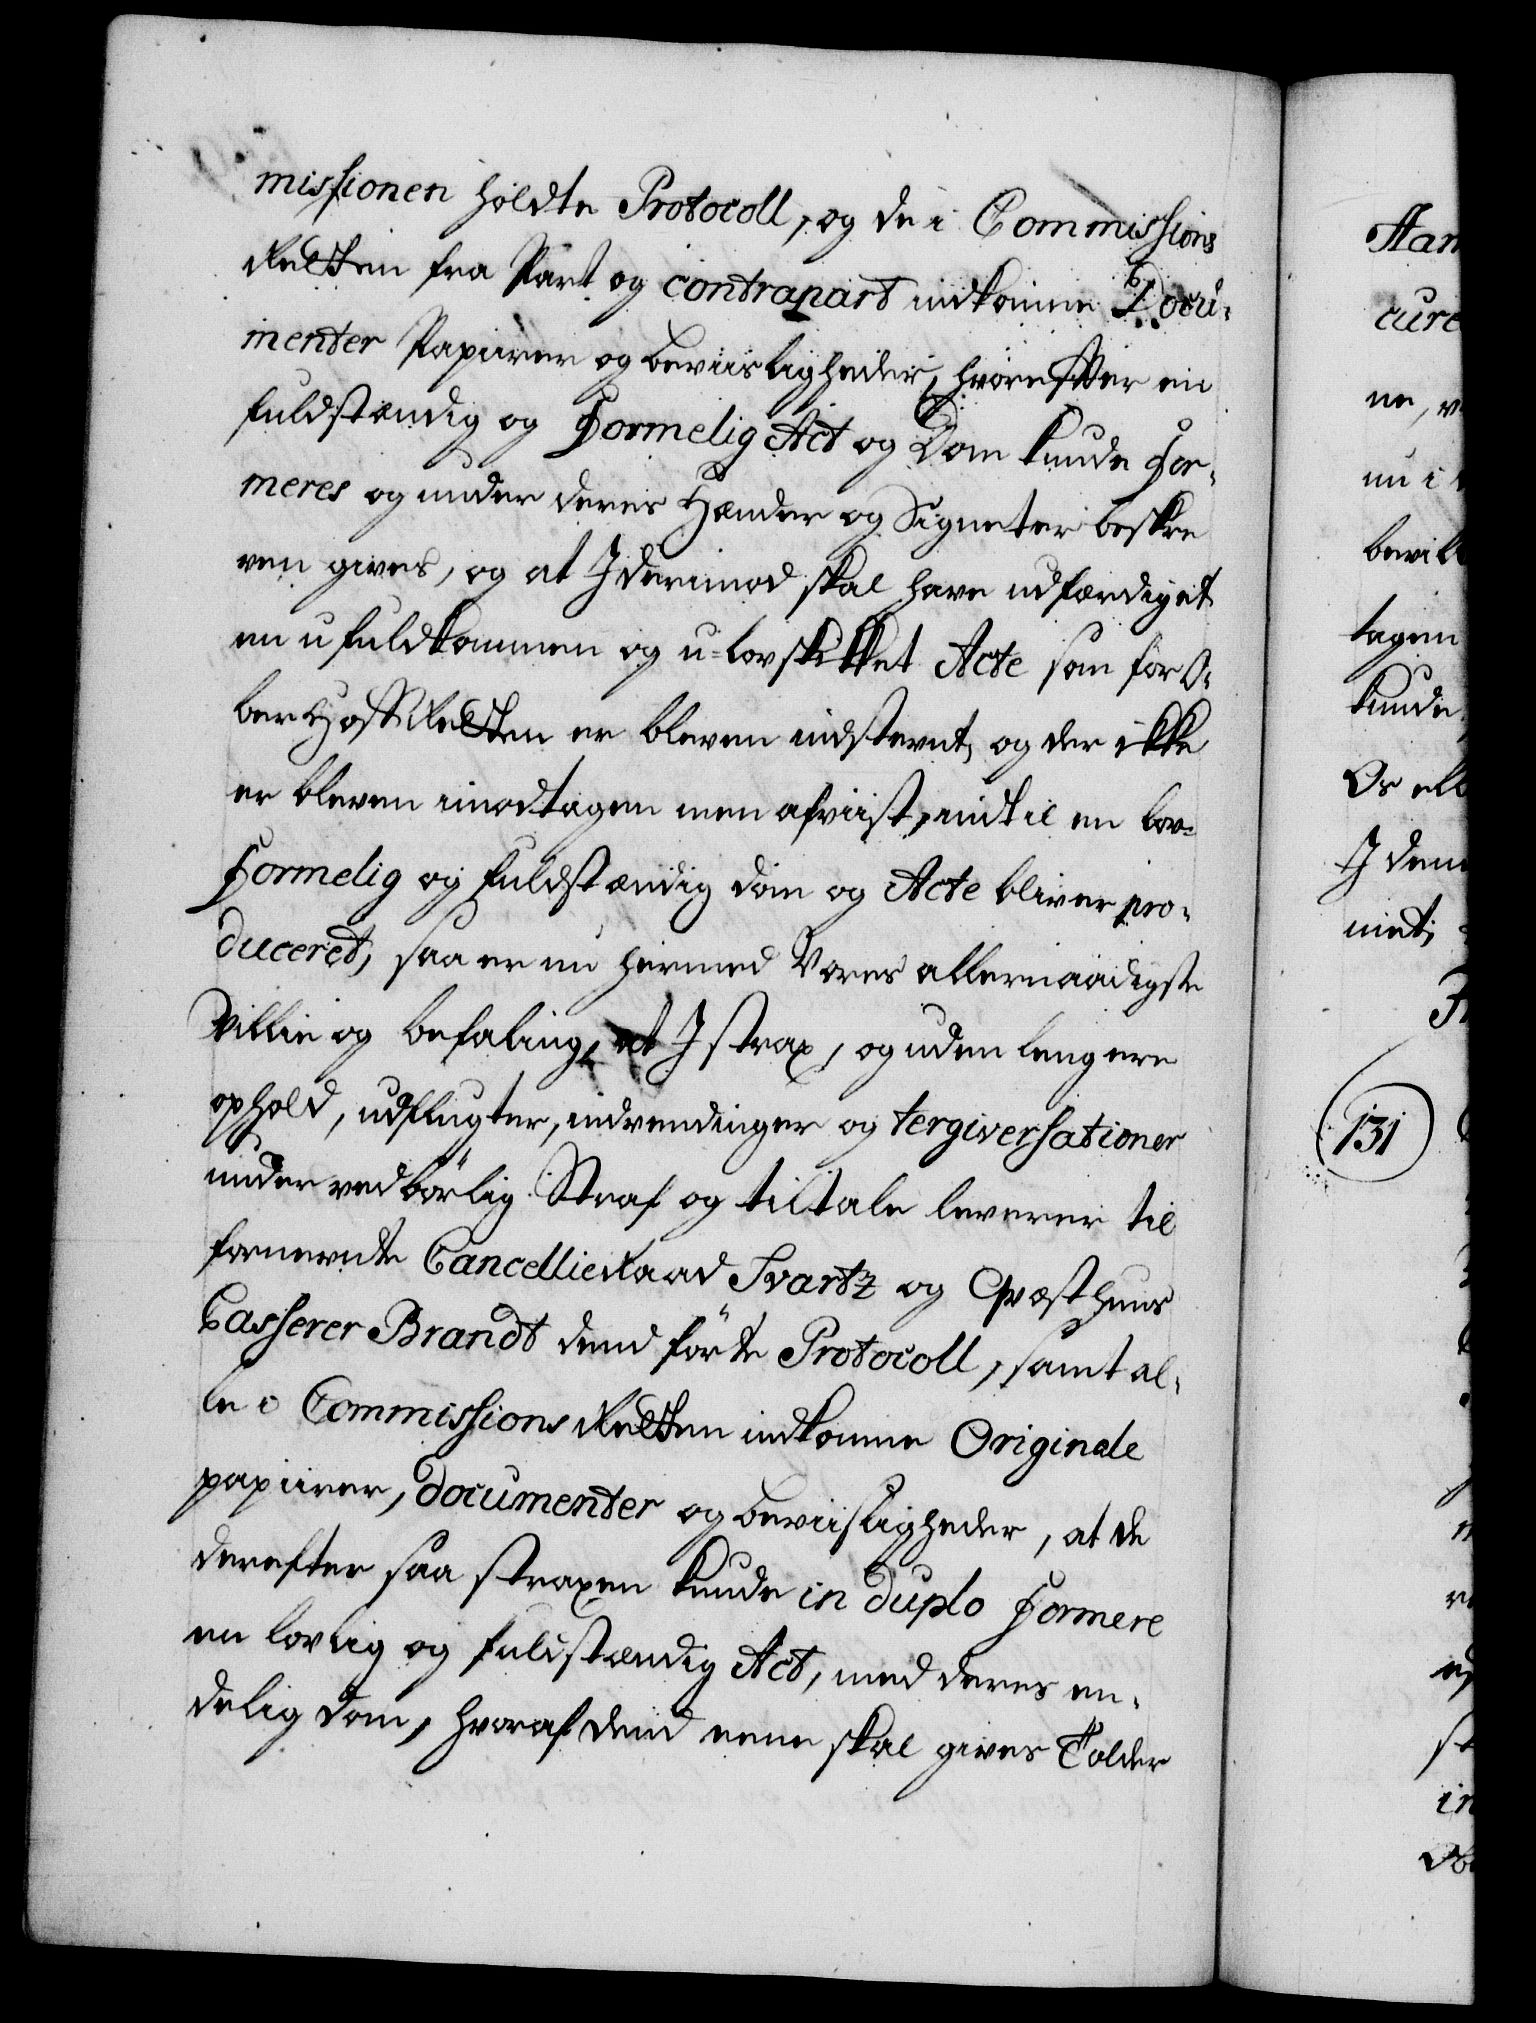 missionen holdte Protocoll, og de i Commissions
Retten fra Part og contrapart indkomne Docu-
menter Papiirer og beviisligheder, hvorefter en
fuldstændig og Formelig Act og Dom kunde For-
meres og under deres Hænder og Signeter beskre
ven gives, og at I derimod skal have udfærdiget
en ufuldkommen og u-lovskikket Acte som for O-
ber Hoff Retten er bleven indstevnt, og der ikke
er bleven imodtagen men afviist, indtil en lov-
Formelig og fuldstændig dom og Acte bliver pro-
duceret, saa er nu hermed Vores allernaadigste
Villie og befaling, at I strax, og uden lengere
ophold, udflugter, indvendinger og tergiversationer
under vedbörlig Straf og tiltale leverer til
fornevnte Cancellie Raad Svartz og Qvæsthuus
Casserer Brandt dend förte Protocoll, samt al-
le i Commissions Retten indkomne Originale
papiirer, documenter og beviisligheder, at de
derefter saa straxen kunde in duplo Formere
en lovlig og fuldstændig Act, med deres en-
delig dom, hvoraf dend eene skal gives Tolder
Han
cure
ne, v
nu i
bevil
tagen
kunde
Os ell
I dem
met;
(131)
in